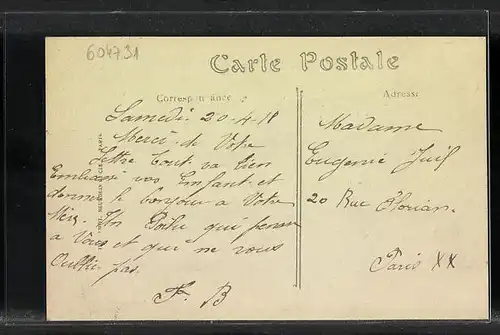 604731
Carte Postale
Correspondance
Adresse
Samedi 20-4-18
Merci de Votre
lettre tout va bien
Embrassé vos Enfant et
donner le bonjour a Votre
Un Poilu qui pense
a Vous et que ne vous
Oublie pas.
F. B
Madame
Eugenie Juif
20 Rue Florian.
Paris XX